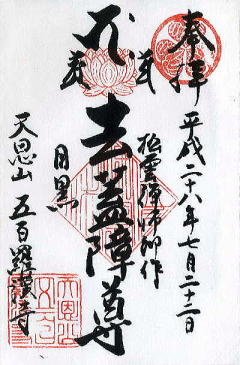 奉拝
平成二十八年七月二十二日
松雲禅師御作
去蓋障尊
目黒
天恩山 五百羅漢寺